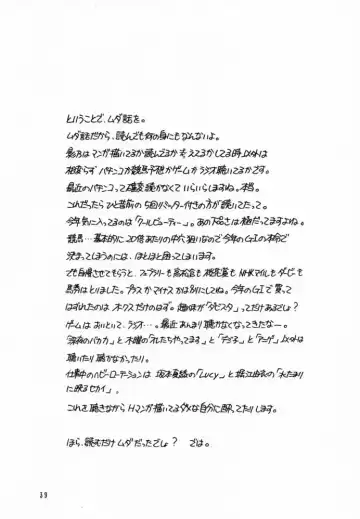 ということで、ムダ話を。
ムダ話だから、読んでも何の身にもなんないよ。
最近はマンガ描いてるか読んでるか考えてるかしてる時以外は
相変らず パチンコか競馬予想かゲームかラジオ聴いてるかです。
最近のパチンコって確変続かなくていらいらしますね。
これだったらひと昔前の5回リミッター付きの方が続いてたって。
今年気に入ってるのは「クールビューティー」。あの下品さは極だってますよね。
競馬…基本的に20倍あたりの中穴狙いなので今年のGIの本命で
決まってしまうのには、ほとほと困ってしまいます。
でも自慢させてもらうと、スプリングも高松宮も桜花賞もNHKマイルもダービーも
馬券はとりました。プラスかマイナスかは別にしてね。今年のGIで買って
はずれたのはオークスだけのはず。趣味が「ダビスタ」ってだけあるでしょ?
ゲームはおいといて、ラジオ…。最近あんまり聴かなくなってきたなー。
「深夜のバカ力」と木曜の「オレたちやってます」と「デジ子」と「アニゲ」以外は
聴いたり聴かなかったり。
仕事中のヘビーローテーションは坂本真綾の「Lucy」と堀江由衣の「水たまり
に映るセカイ」
これを聴きながらHマンガ描いてるダメな自分に酔ってたりします。
ほら、読むだけムダだったでしょ? では。
39